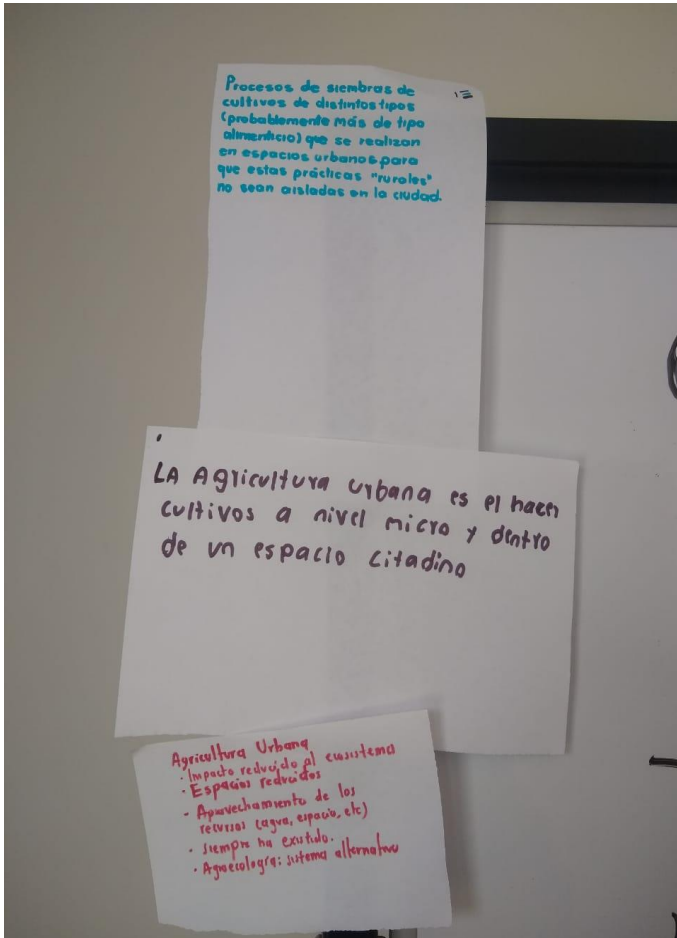 Procesos de siembras de
cultivos de distintos tipos
(probablemente más de tipo
alimenticio) que se realizan
en espacios urbanos para
que estas prácticas "rurales"
no sean aisladas en la ciudad.
LA Agricultura urbana es el hacer
cultivos a nivel micro y dentro
de un espacio citadino
Agricultura Urbana
· Impacto reducido al ecosistema
· Espacios reducidos
- Aprovechamiento de los
recursos (agua, espacio, etc)
· siempre ha existido.
· Agroecología: sistema alternativo